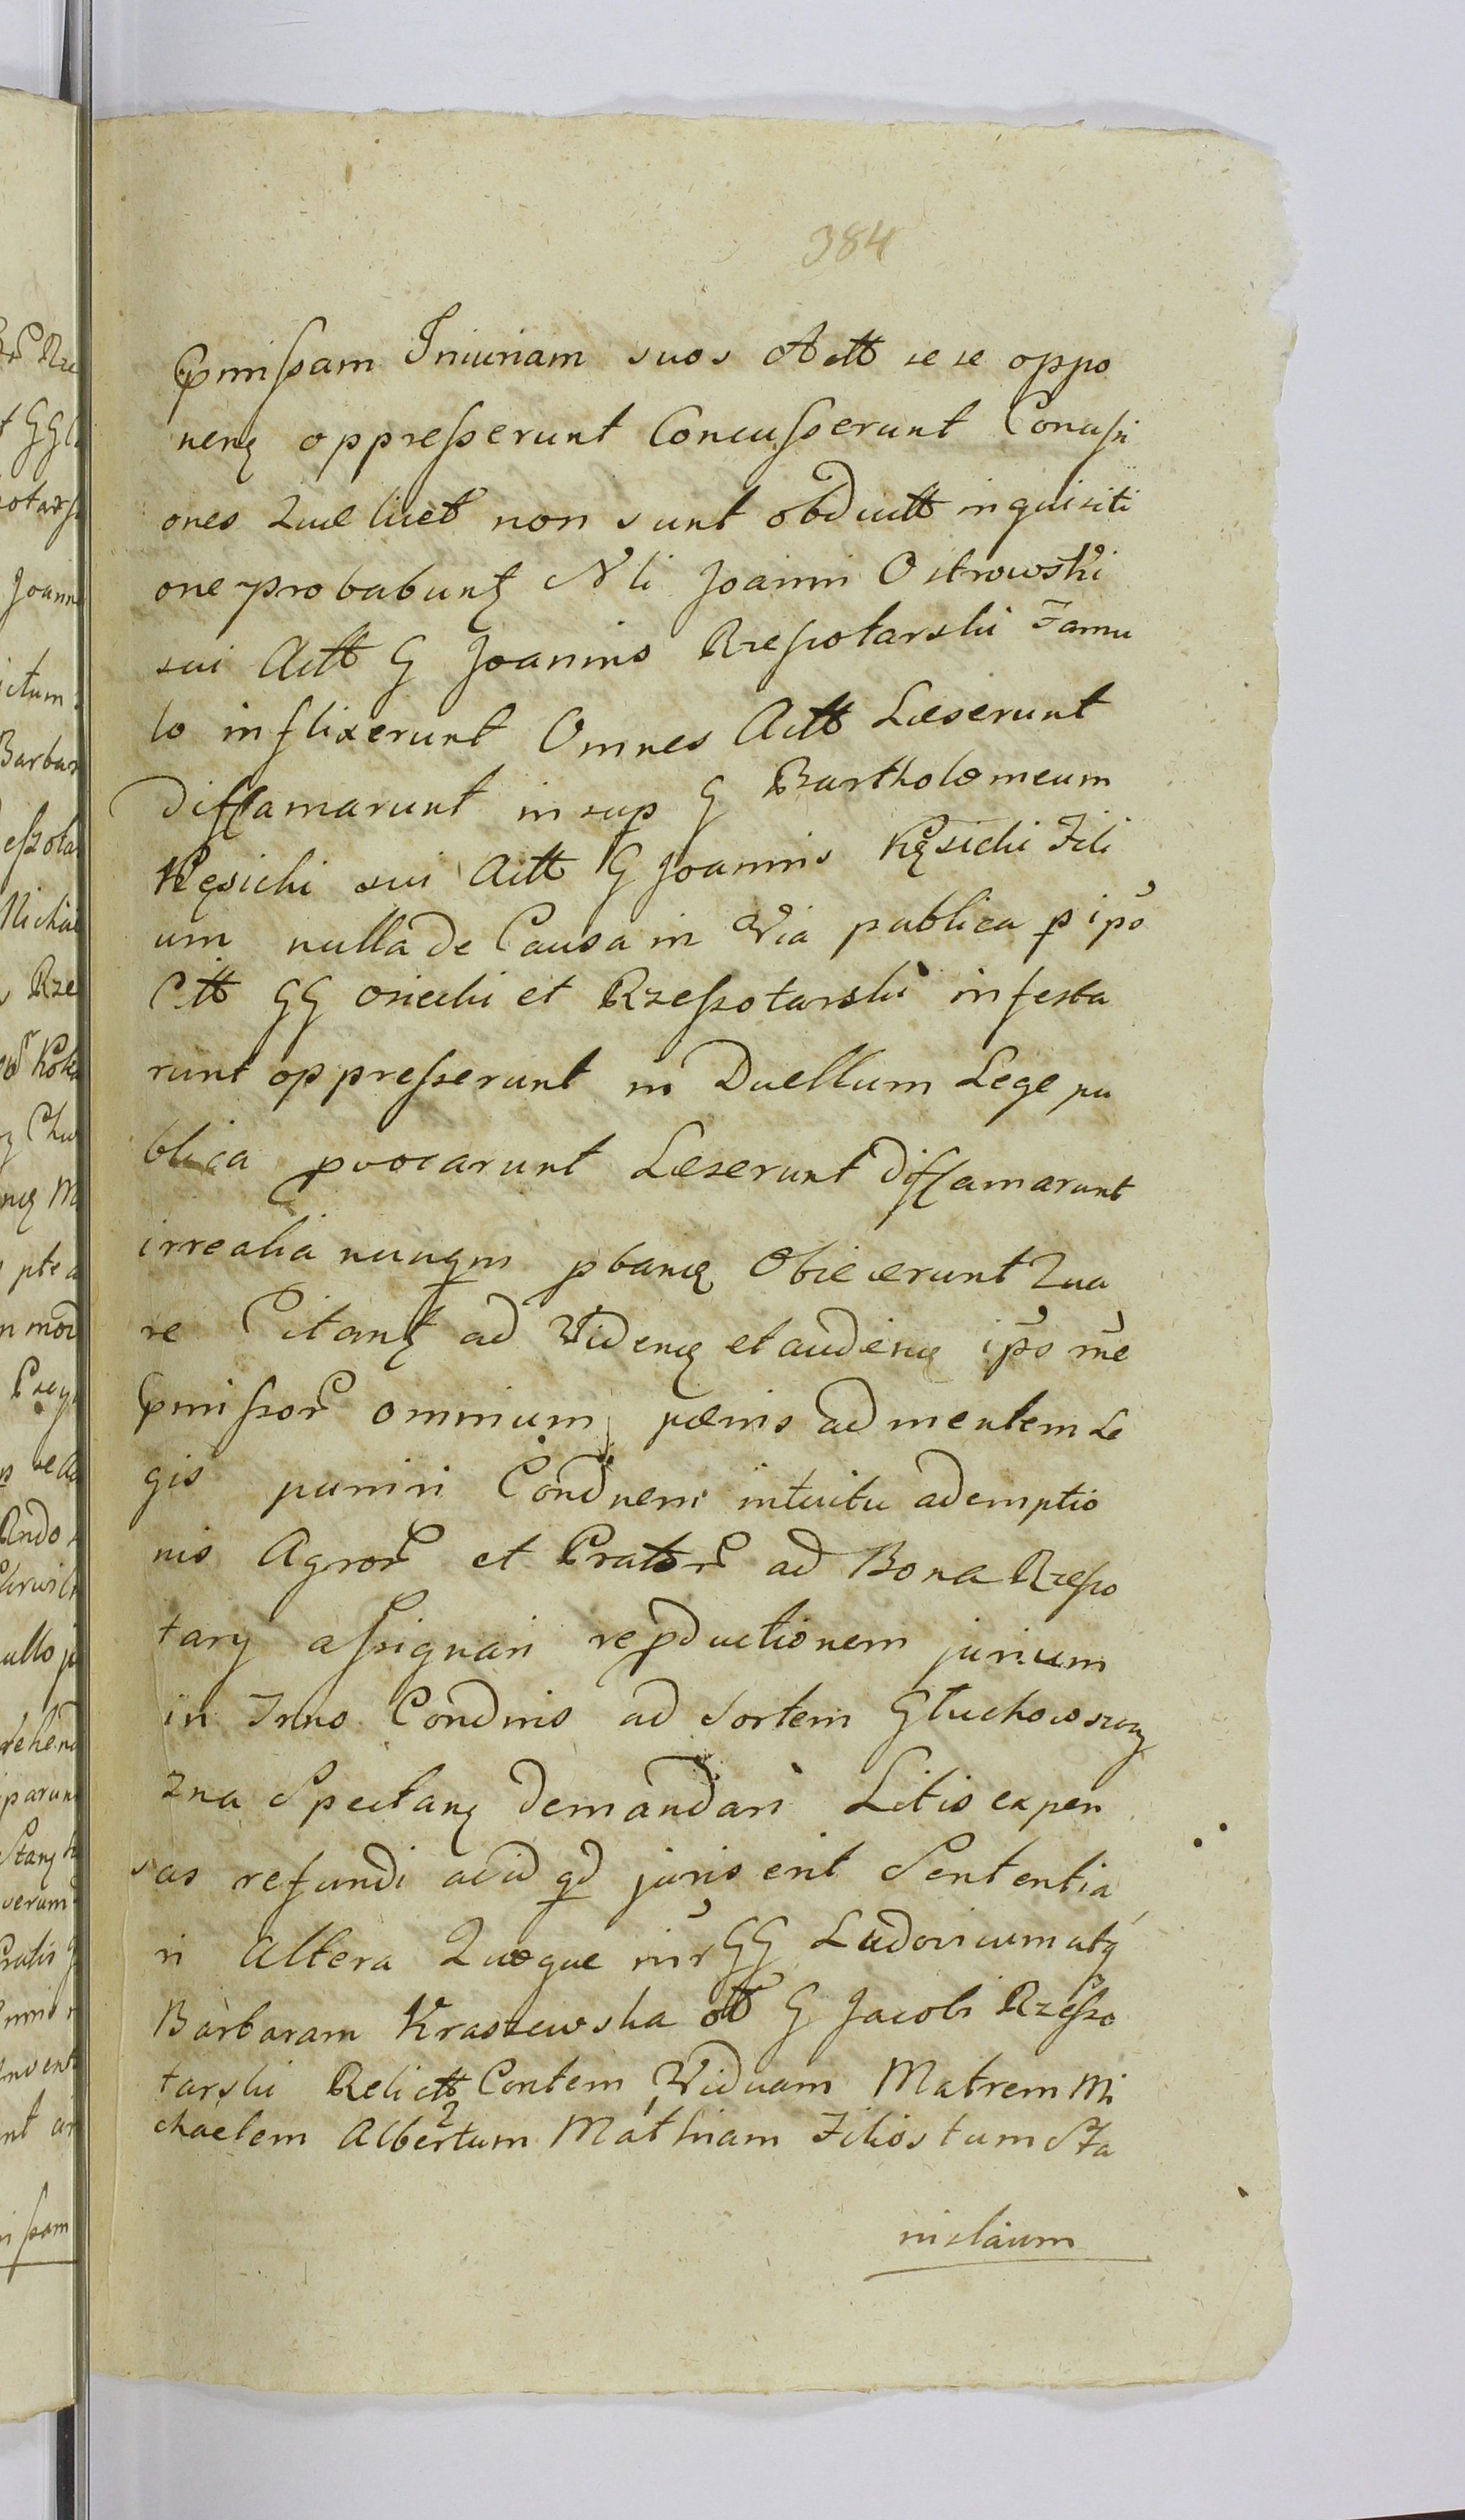 384
Pmissam Iniuriam suos Actt se se oppo
nenȩ oppresserunt Concusserunt Concussi
ones Quæ licet non sunt obductt inquisiti
one probabuntȩ Nli Joanni Ostrowski
sui Actt G Joannis Rzeszotarski Famu
lo inflixerunt Omnes Actt Læserunt
Diffamarunt insup G Bartholomeum
Kęsicki sui Actt G Joannis Kęsicki Fili
um nulla de Causa in Via publica p ips
Citt GG Osiecki et Rzeszotarski infesta
runt oppresserunt in Duellum Lege pu
blica pvocarunt Læserunt diffamarunt
irrealia nunqm pbanȩ Obiecerunt Qua
re Citantȩ ad Videnȩ et audienȩ ips rne
Pmissorȓ omnium pœnis ad mentem Le
gis puniri Condneni intuitu ademptio
nis Agrorȓ et Pratorȓ ad Bona Rzeszo
tary assignari repductionem jurium
in Trno Condnis ad Sortem Głuchowszczy
zna Spectanȩ demandari Litis expen
sas refundi ac id qd juris erit Sententia
ri Altera Quoque intr GG Ludovicum atq
Barbaram Kraszewska olt G Jacobi Rzeszo
tarski Relictt Contem Viduam Matrem Mi
chaelem Albertum Mathiam Filios tum Sta
nislaum